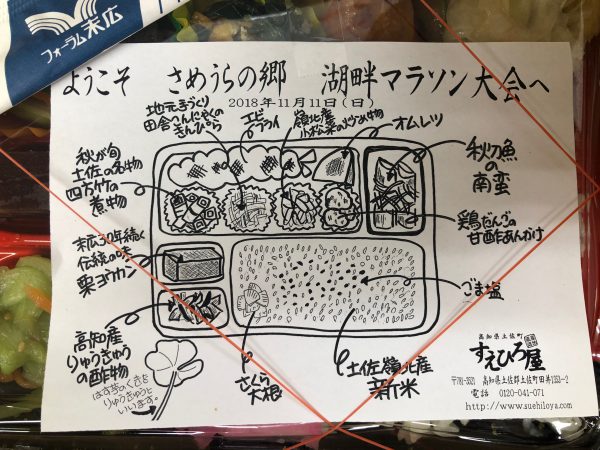 フォーラム末広
ようこそ さめうらの郷 湖畔マラソン大会へ
2018年11月11日(日)
地元手づくり
田舎こんにゃくの
きんぴら
エビ
フライ
嶺北産
小松菜の炒め物
オムレツ
秋が旬
土佐の名物
四方竹の
煮物
秋刀魚
の
南蛮
末広30年続く
伝統の味
栗ヨウカン
鶏だんごの
甘酢あんかけ
ごま塩
高知産
りゅうきゅう
の酢物
はす芋のくきを
りゅうきゅうと
いいます。
さくら
大根
土佐嶺北産
新米
高知県土佐町
すえひろ屋
〒781-3521 高知県土佐郡土佐町田井133-2
電話 0120-041-071
http://www.suehiloya.com